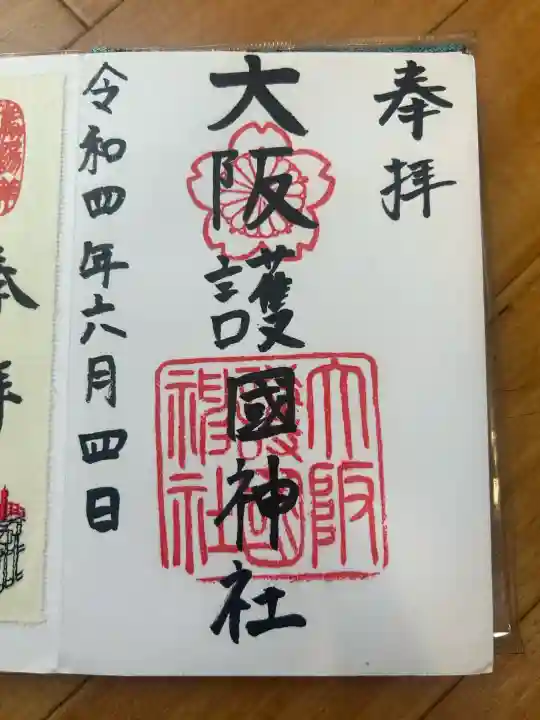 奉拝
大阪護國神社
大阪
護國
神社
令和四年六月四日
奉拝